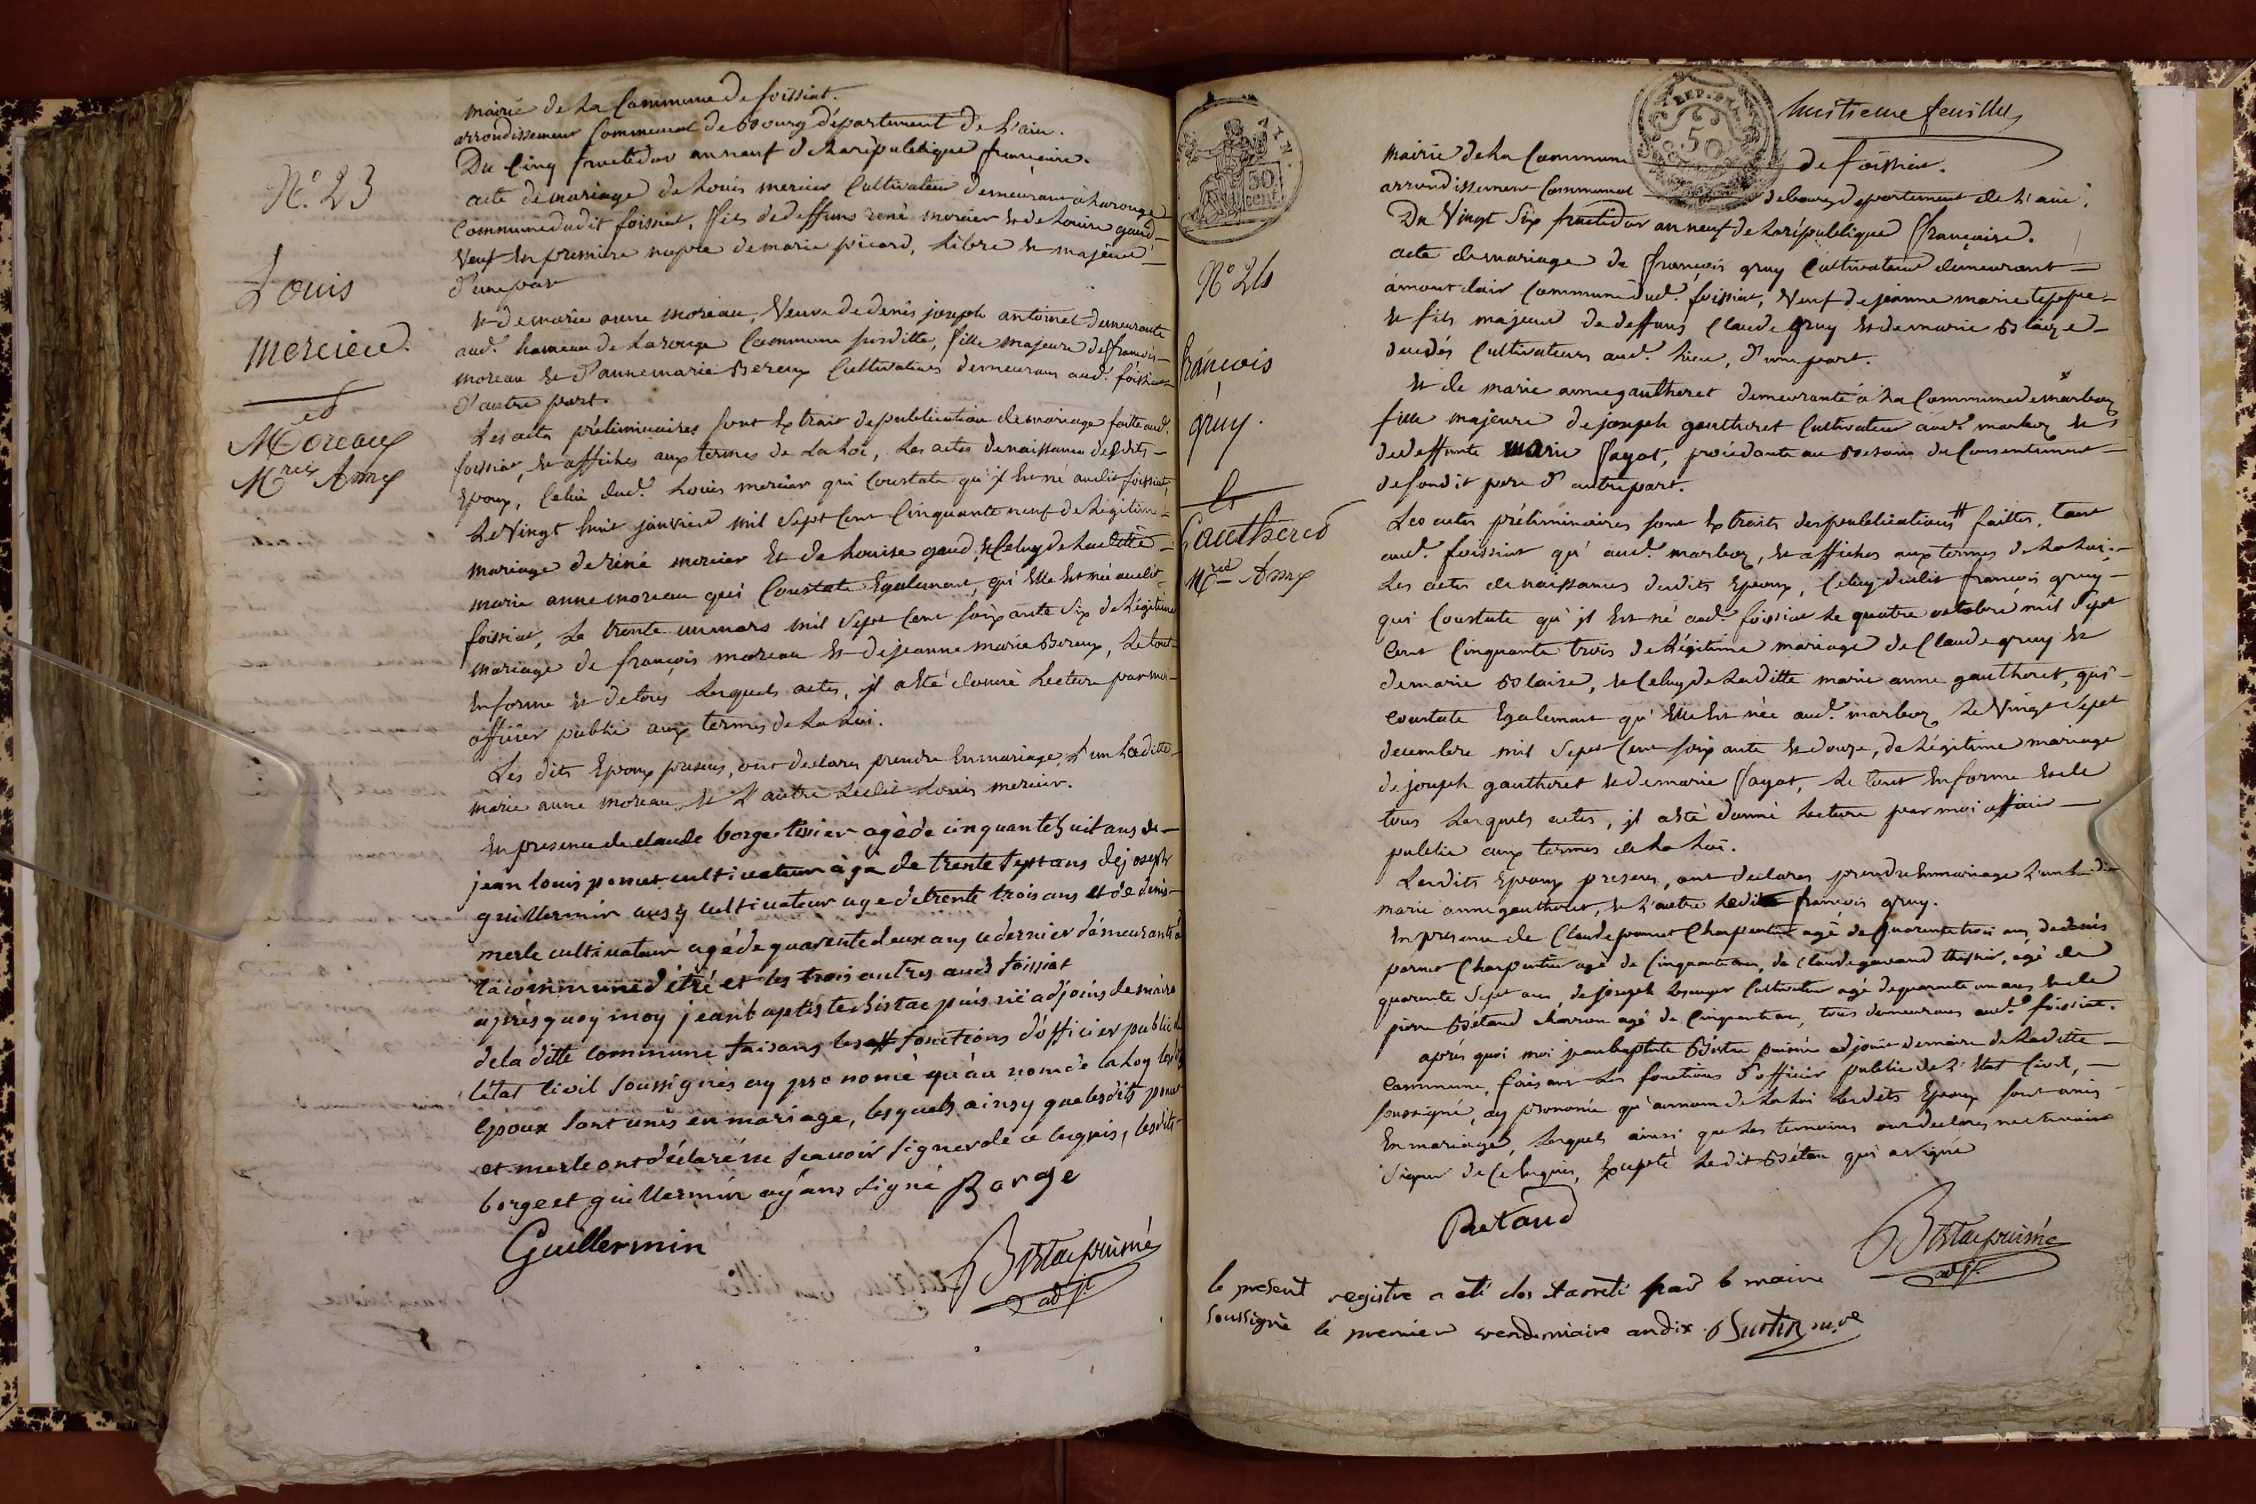 mairie de la Commune de foissiat.
arrondissement Communal de Bourg département de L'ain.
Du Cinq fructidor an neuf de La république francaise.
N.° 23
acte de mariage de Louis mercier Cultivateur demeurant à La rouge
Commune dudit foissiat, fils de deffuns rené mercier et de Louise gaud
Veuf en premiere nopce de marie picard, Libre et majeur
d'une part
Louis
mercier.
et
Moreau
M.rie Anne
et de marie anne moreau, Veuve de denis joseph antoinet demeurante
aud.t hameau de La rouge Commune susditte, fille majeure de françois
moreau et d'anne marie Bereux Cultivateurs demeurans aud.t foissiat
d'autre part.
Les actes préliminaires sont Extrait de publication de mariage faitte aud.t
foissiat, et affiches aux termes de La Loi, Les actes de naissances desdits
Epoux, Celui dud.t Louis mercier qui Constate qu'il Est né audit foissiat,
Le Vingt huit janvier mil Sept Cent Cinquante neuf de Légitime
mariage de réné mercier Et de Louise gaud, et Celuy de Laditte
marie anne moreau qui Constate Egalement, qu'Elle Est née audit
foissiat, Le trente un mars mil Sept Cent soixante Six de Légitime
mariage de françois moreau et de jeanne marie Bereux, Le tout
En forme et de tous Lesquels actes, il a Eté donné Lecture par moi
officier public aux termes de La Loi.
Les dits Epoux presens, ont declarés prendre En mariage, L'un Laditte
marie anne moreau, et L'autre Ledit Louis mercier.
En presence de claude borge tixier agé de cinquante huit ans de
jean louis ponset cultivateur agé de trente sept ans de joseph
guillermin aussy cultivateur age de trente trois ans et de denis
merle cultivateur agé de quarente deux ans ce dernier demeurant à
la commune d'étré et les trois autres aud.t foissiat
après quoy moy jean baptiste bistac puisné adjoins de maire
de la ditte commune faisans les fonctions d'officier public de
l'état civil soussignés ay prononcé qu'au nom de la loy lesdits
époux sont unis en mariage, lesquels ainsy que lesdits ponset
et merle ont déclaré ne scavoir signer de ce enquis, lesdits
borge et guillermin ayans signé Borge
Guillermin
Bistac puisné
adj.t
huitieme feuillet
REP. FRA.
50
50
cent.
mairie de La Commune de foissiat.
arrondissement Communal de bourg departement de L'ain.
Du Vingt Six fructidor an neuf de La république française.
N.° 24
françois
gruy.
Et
Gautheret
M.rie Anne
acte de mariage de françois gruy Cultivateur demeurant
à mont clair Commune dud.t foissiat, Veuf de jeanne marie
et fils majeur de deffuns Claude gruy et de marie Blaize
decedés Cultivateurs aud.t Lieu, d'une part.
et de marie anne gautheret demeurante à La Commune de marboz
fille majeure de joseph gautheret Cultivateur aud.t marboz et
de deffunte marie fayot, procédante au Besoin du Consentement
de sondit pere d'autre part.
Les actes préliminaires sont Extraits des publications faittes, tant
aud.t foissiat qu'aud.t marboz, et affiches aux termes de La Loi.
Les actes de naissances desdits Epoux, Celuy dudit françois gruy
qui Constate qu'il Est né aud.t foissiat Le quatre octobre mil Sept
Cent Cinquante trois de Légitime mariage de Claude gruy et
de marie Blaise, et Celuy de Laditte marie anne gautheret, qui
Constate Egalement qu'Elle Est née aud.t marboz Le Vingt Sept
decembre mil Sept Cent soixante et douze, de Légitime mariage
de joseph gautheret et de marie fayot, Le tout En forme Et de
tous Lesquels actes, il a Eté donné Lecture par moi officier
public aux termes de La Loi.
Lesdits Epoux presens, ont declarés prendre En mariage L'un Ladite
marie anne gautheret, et L'autre Ledit françois gruy.
En presence de Claude ponset Charpentier agé de quarente trois ans, de denis
ponset Charpentier agé de Cinquante ans, de Claude gavand thissier, agé de
quarante Sept ans, de joseph Cultivateur agé de quarante un ans Et de
pierre Bétaud charron agé de Cinquante ans, tous demeurans aud.t foissiat.
après quoi moi jean baptiste Bistac puisné adjoint de maire de Laditte
Commune, faisant Les fonctions d'officier public de L'Etat Civil,
soussigné, ay prononcé qu'au nom de La Loi Lesdits Epoux sont unis
En mariage, Lesquels ainsi que Les temoins ont declarés ne scavoir
Signer de Ce Enquis, Excepté Ledit Bétau qui a signé
Betaud
Bistac puisné
adj.t
le present registre a eté clos et arreté par le maire
soussigné le premier vendemiaire an dix.